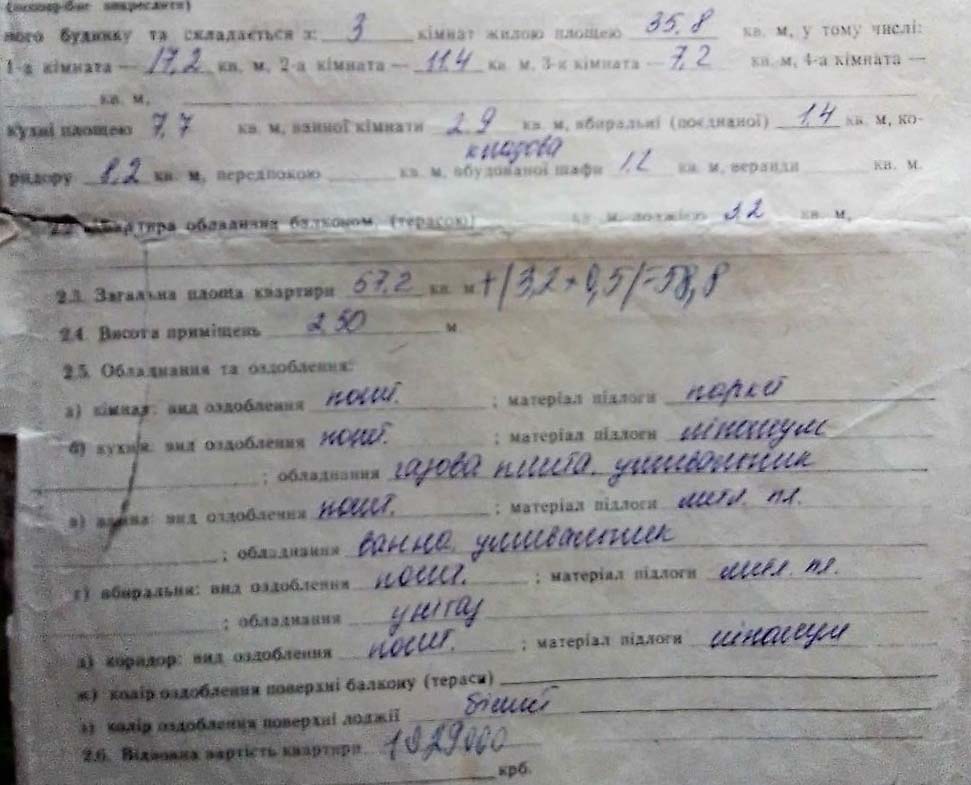 (непотрібне закреслити)
ного будинку та складається з: 3 кімнат жилою площею 35,8 кв. м, у тому числі:
1-а кімната — 17,2 кв. м, 2-а кімната — 11,4 кв. м, 3-я кімната — 7,2 кв. м, 4-а кімната —
кв. м,
кухні площею 7,7 кв. м, ванної кімнати 2.9 кв. м, вбиральні (поєднаної) 1,4 кв. м, ко-
кладова
ридору 8,2 кв. м, передпокою кв. м, вбудованої шафи 1,2 кв. м, веранди кв. м.
2.2. Квартира обладнана балконом (терасою) кв. м, лоджією 3.2 кв. м,
2.3. Загальна площа квартири 57,2 кв. м + (3,2 × 0,5) = 58,8
2.4. Висота приміщень 2.50 м
2.5. Обладнання та оздоблення:
а) кімнат: вид оздоблення пошт. ; матеріал підлоги паркет
б) кухня: вид оздоблення пошт. ; матеріал підлоги лінолеум
; обладнання газова плита, умивальник
в) ванна: вид оздоблення пошт. ; матеріал підлоги метл. пл.
; обладнання ванна, умивальник
г) вбиральня: вид оздоблення пошт. ; матеріал підлоги метл. пл.
; обладнання унітаз
д) коридор: вид оздоблення пошт. ; матеріал підлоги лінолеум
ж) колір оздоблення поверхні балкону (тераси)
з) колір оздоблення поверхні лоджії білий
2.6. Відновна вартість квартири 1929000
крб.